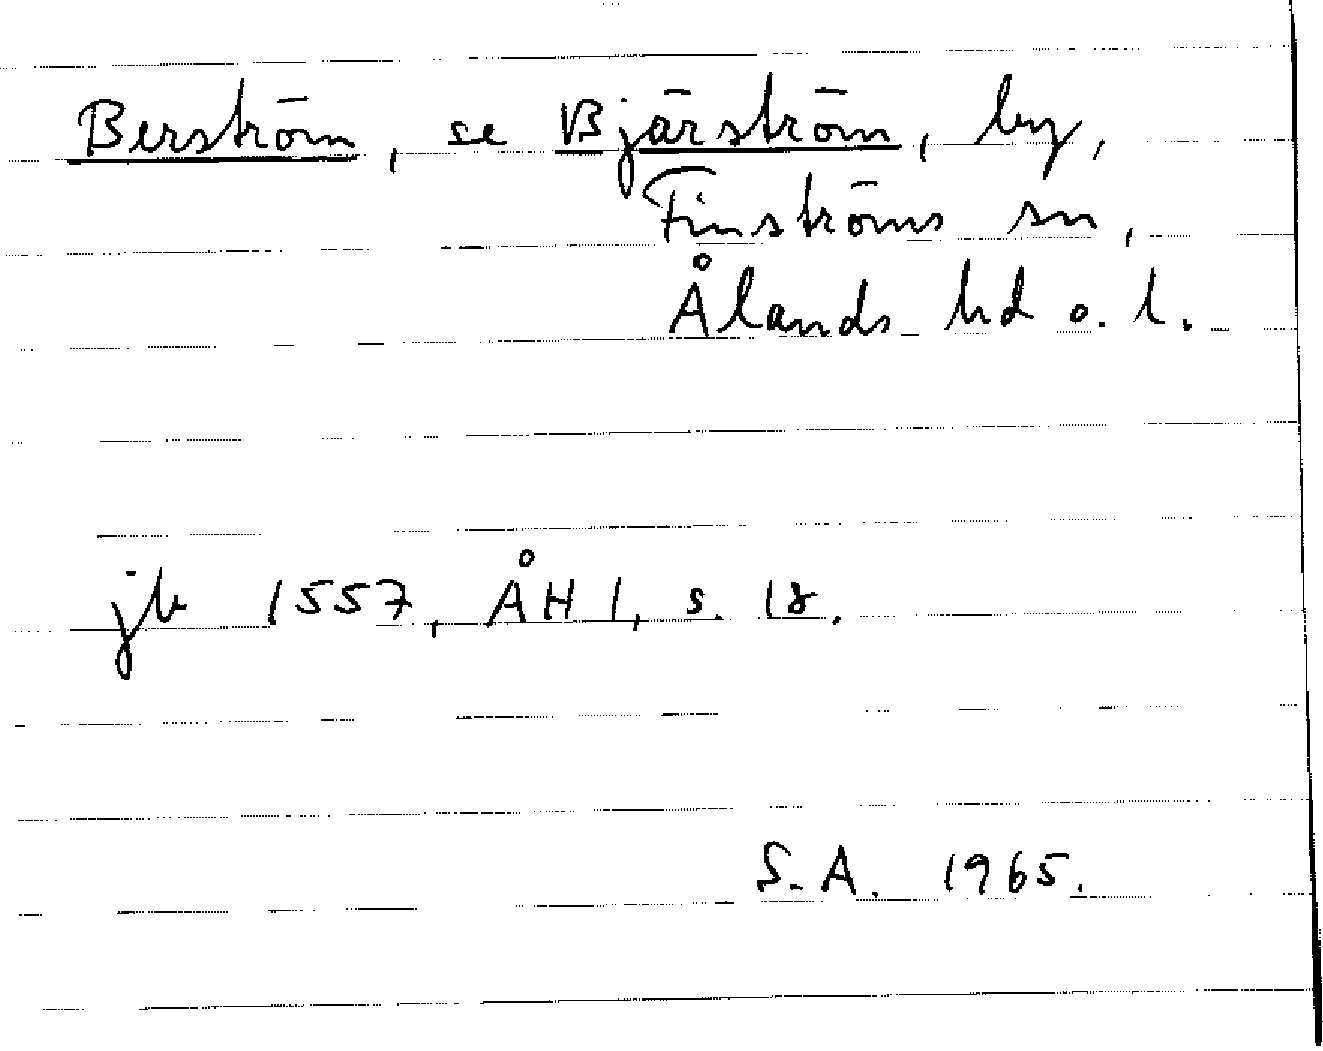 Berström, se Bjärström, by,
Finströms sn,
Ålands hd o. l.
jb 1557, ÅH 1, s. 18.
S.A. 1965.